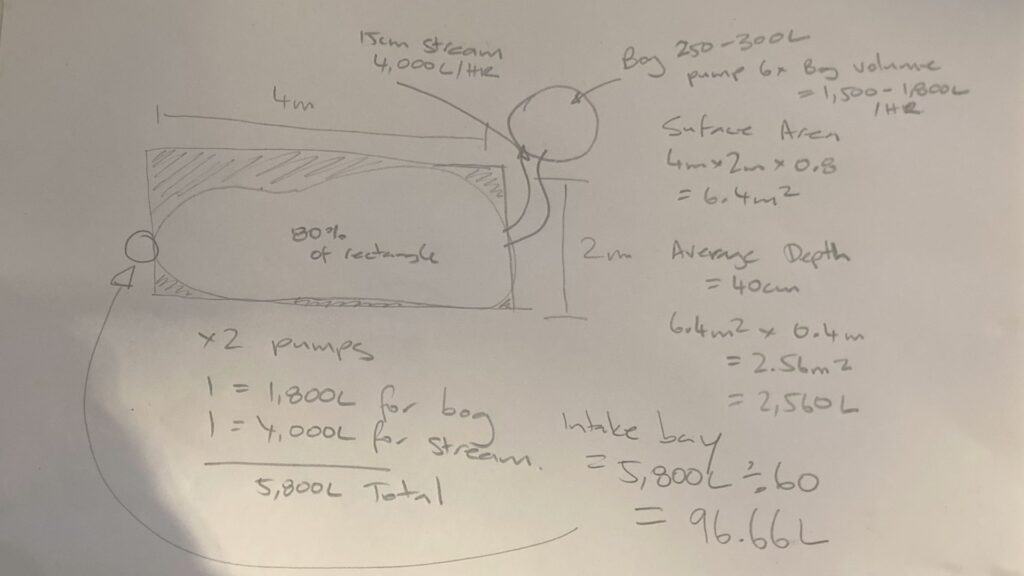 15cm stream
4,000L/HR
Bog 250-300L
pump 6x Bog volume
= 1,500-1,800L
/HR
4m
Surface Area
4m x 2m x 0.8
= 6.4m²
80%
of rectangle
2m
Average Depth
= 40cm
6.4m² x 0.4m
= 2.56m²
= 2,560L
x2 pumps
1 = 1,800L for bog
1 = 4,000L for stream.
5,800L Total
Intake bay
= 5,800L ÷ 60
= 96.66L